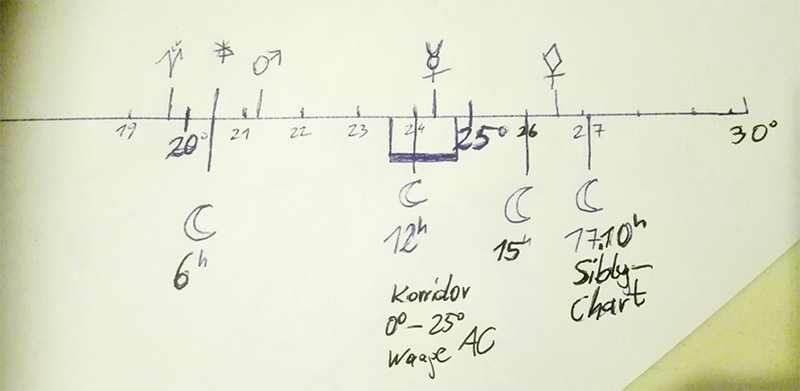 19 20° 21 22 23 24 25° 26 27 30°
6h
12h
15h
17.10h
Sibly-
Chart
Korridor
0°-25°
Waage AC